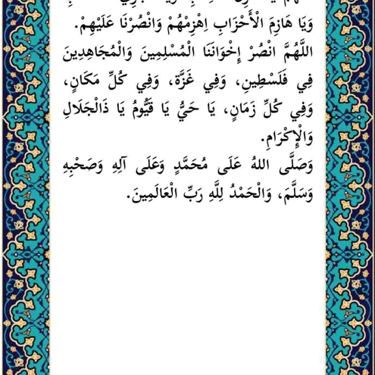 وَيَا هَازِمَ الْأَحْزَابِ اِهْزِمْهُمْ وَانْصُرْنَا عَلَيْهِمْ.
اللَّهُمَّ انْصُرْ إِخْوَانَنَا الْمُسْلِمِينَ وَالْمُجَاهِدِينَ
فِي فَلَسْطِينَ، وَفِي غَزَّةَ، وَفِي كُلِّ مَكَانٍ،
وَفِي كُلِّ زَمَانٍ، يَا حَيُّ يَا قَيُّومُ يَا ذَالْجَلَالِ
وَالْإِكْرَامِ.
وَصَلَّى اللهُ عَلَى مُحَمَّدٍ وَعَلَى آلِهِ وَصَحْبِهِ
وَسَلَّمَ، وَالْحَمْدُ لِلَّهِ رَبِّ الْعَالَمِينَ.